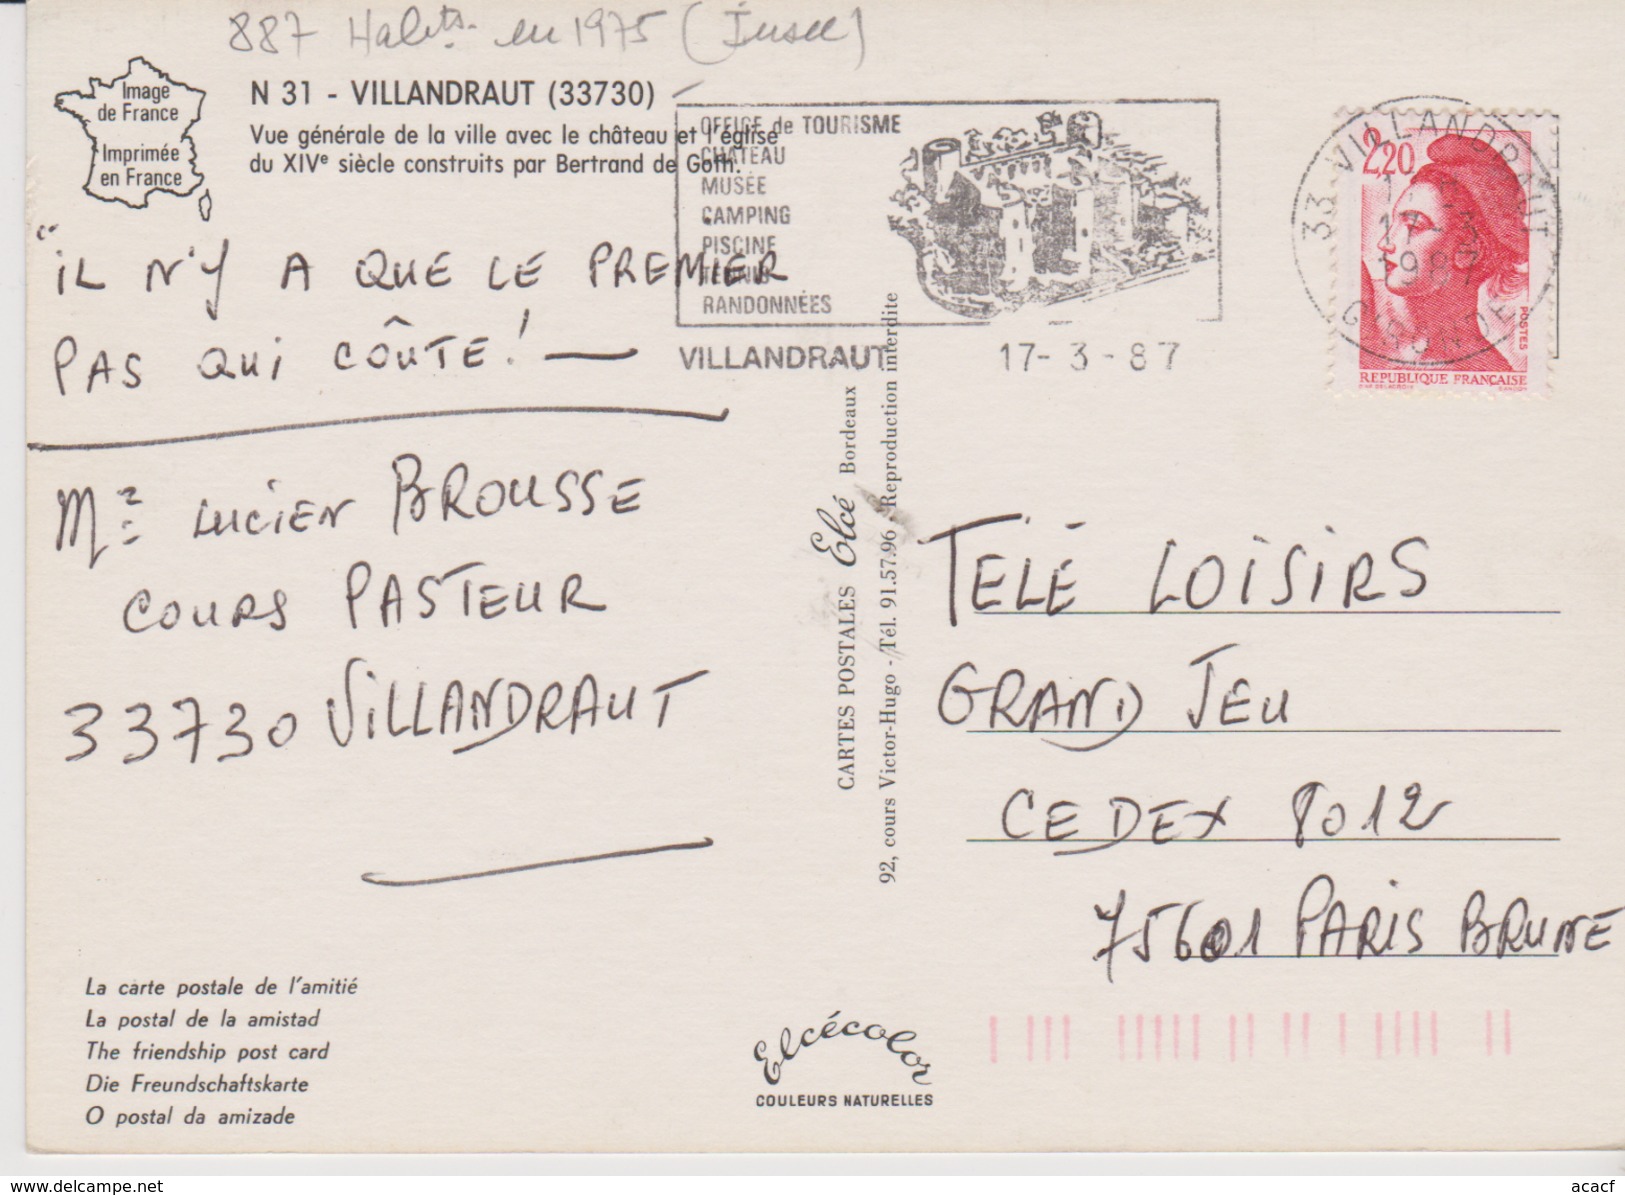 887 Habts. en 1975 (Insee)
Image
de France
Imprimée
en France
N 31 - VILLANDRAUT (33730)
Vue générale de la ville avec le château et l'église
du XIVe siècle construits par Bertrand de Goth.
OFFICE de TOURISME
CHATEAU
MUSÉE
CAMPING
PISCINE
TENNIS
RANDONNÉES
VILLANDRAUT 17-3-87
33 VILLANDRAUT
17-3
1987
GIRONDE
2,20
POSTES
REPUBLIQUE FRANÇAISE
"IL N'Y A QUE LE PREMIER
PAS QUI COÛTE! —
Mr LUCIEN BROUSSE
COURS PASTEUR
33730 VILLANDRAUT
CARTES POSTALES Elcé Bordeaux
92, cours Victor-Hugo - Tél. 91.57.96 - Reproduction interdite
TÉLÉ LOISIRS
GRAND JEU
CEDEX 8012
75601 PARIS BRUNE
La carte postale de l'amitié
La postal de la amistad
The friendship post card
Die Freundschaftskarte
O postal da amizade
Elcécolor
COULEURS NATURELLES
www.delcampe.net
acacf